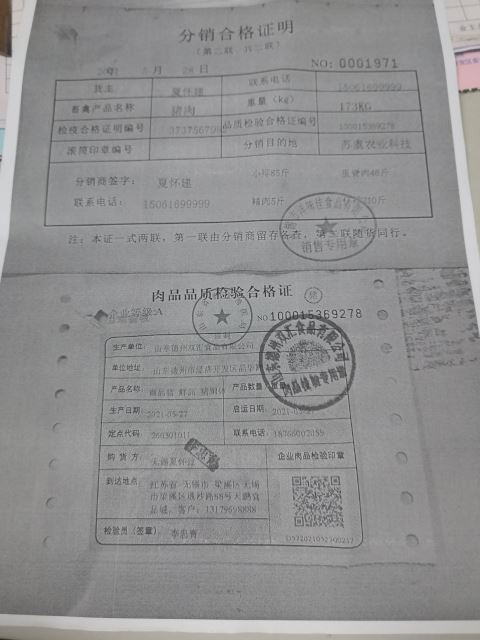 分销合格证明
（第二联，共二联）
月 28 日 NO: 0001971
货主 夏怀建 联系电话 15061699999
畜禽产品名称 猪肉 重量（kg） 173KG
检疫合格证明编号 品质检验合格证编号 100015369278
滚筒印章编号 分销目的地 农业科技
分销商签字： 夏怀建 小排85斤
联系电话： 15061699999 精肉5斤
注：本证一式两联，第一联由分销商留存备查，第二联随货同行。
销售专用章
肉品品质检验合格证 猪
企业等级:A NO 100015369278
生产单位: 山东德州双汇食品有限公司
单位地址: 山东德州市经济开发区
产品名称: 产品数量
生产日期 2021-05-27 启运日期:
定点代码 260301011 联系电话: 18766002055
购 货 方: 无锡夏怀建 企业肉品检验印章
到达地点: 江苏省 无锡市 梁溪区 无锡
市梁溪区 88号天鹏食
品城，客户: 13179698888
检验员（签章）: 李思青
山东德州双汇食品有限公司
肉品检验专用章